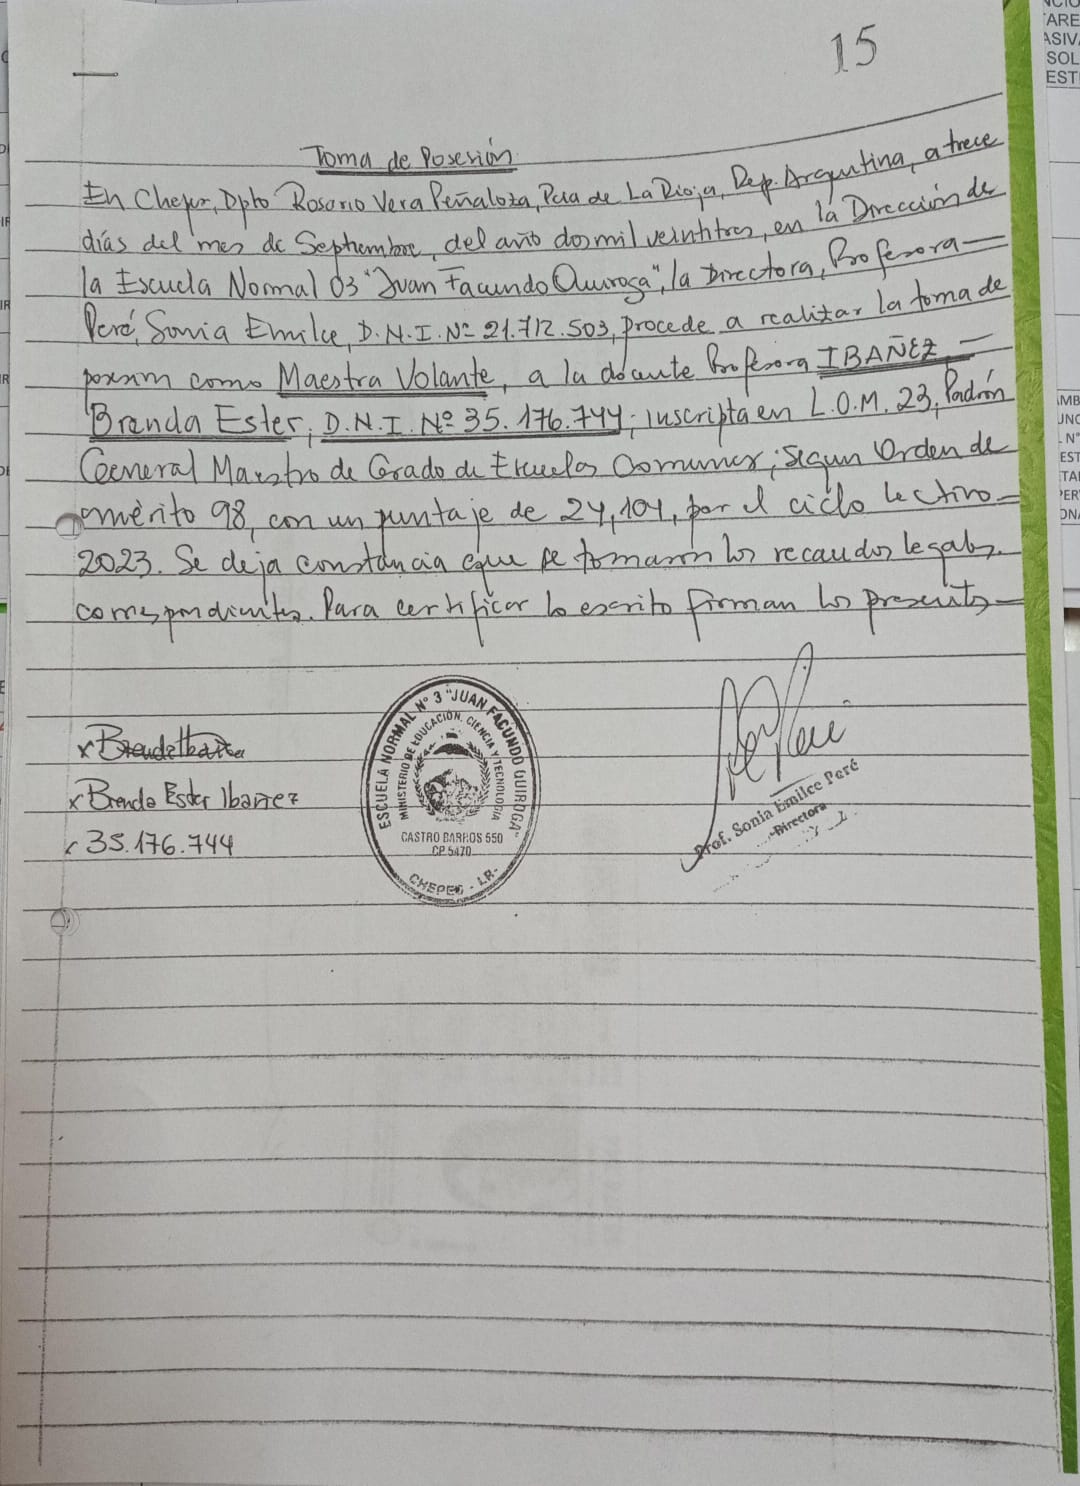 15
Toma de Posesión
En Chepes, Dpto Rosario Vera Peñaloza, Pcia de La Rioja, Rep. Argentina, a trece
días del mes de Septiembre, del año dos mil veintitres, en la Dirección de
la Escuela Normal 03 "Juan Facundo Quiroga", la Directora, Profesora
Peré, Sonia Emilce, D.N.I. Nº 21.712.503, procede a realizar la toma de
posesión como Maestra Volante, a la docente Profesora IBAÑEZ
Brenda Ester, D.N.I. Nº 35.176.744, inscripta en L.O.M. 23, Padrón
General Maestro de Grado de Escuelas Comunes, Según Orden de
mérito 98, con un puntaje de 24,104, por el ciclo lectivo
2023. Se deja constancia que se tomaron los recaudos legales
correspondientes. Para certificar lo escrito firman los presentes
x Brenda Ibañez
x Brenda Ester Ibañez
x 35.176.744
ESCUELA NORMAL Nº 3 "JUAN FACUNDO QUIROGA"
MINISTERIO DE EDUCACIÓN, CIENCIA Y TECNOLOGIA
CASTRO BARROS 550
CP 5470
CHEPES - LR-
Prof. Sonia Emilce Peré
Directora
ARE
ASIV
SOL
EST